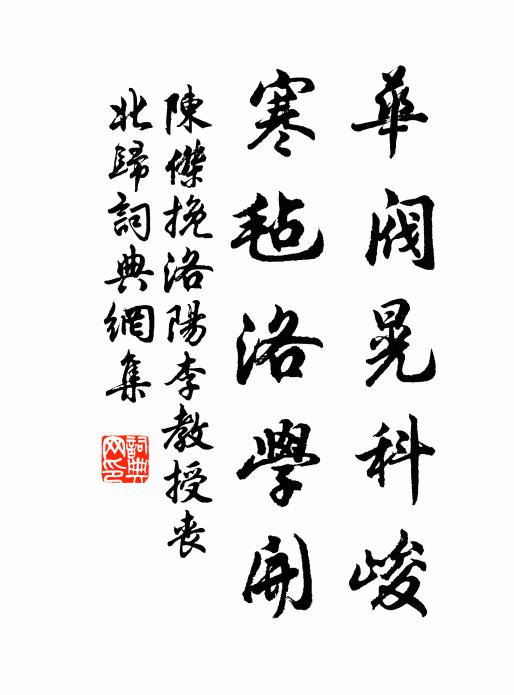 華閥晃科峻
寒毡洛學開
陳傑挽洛陽李教授丧
北歸詞典網集
詞典网印